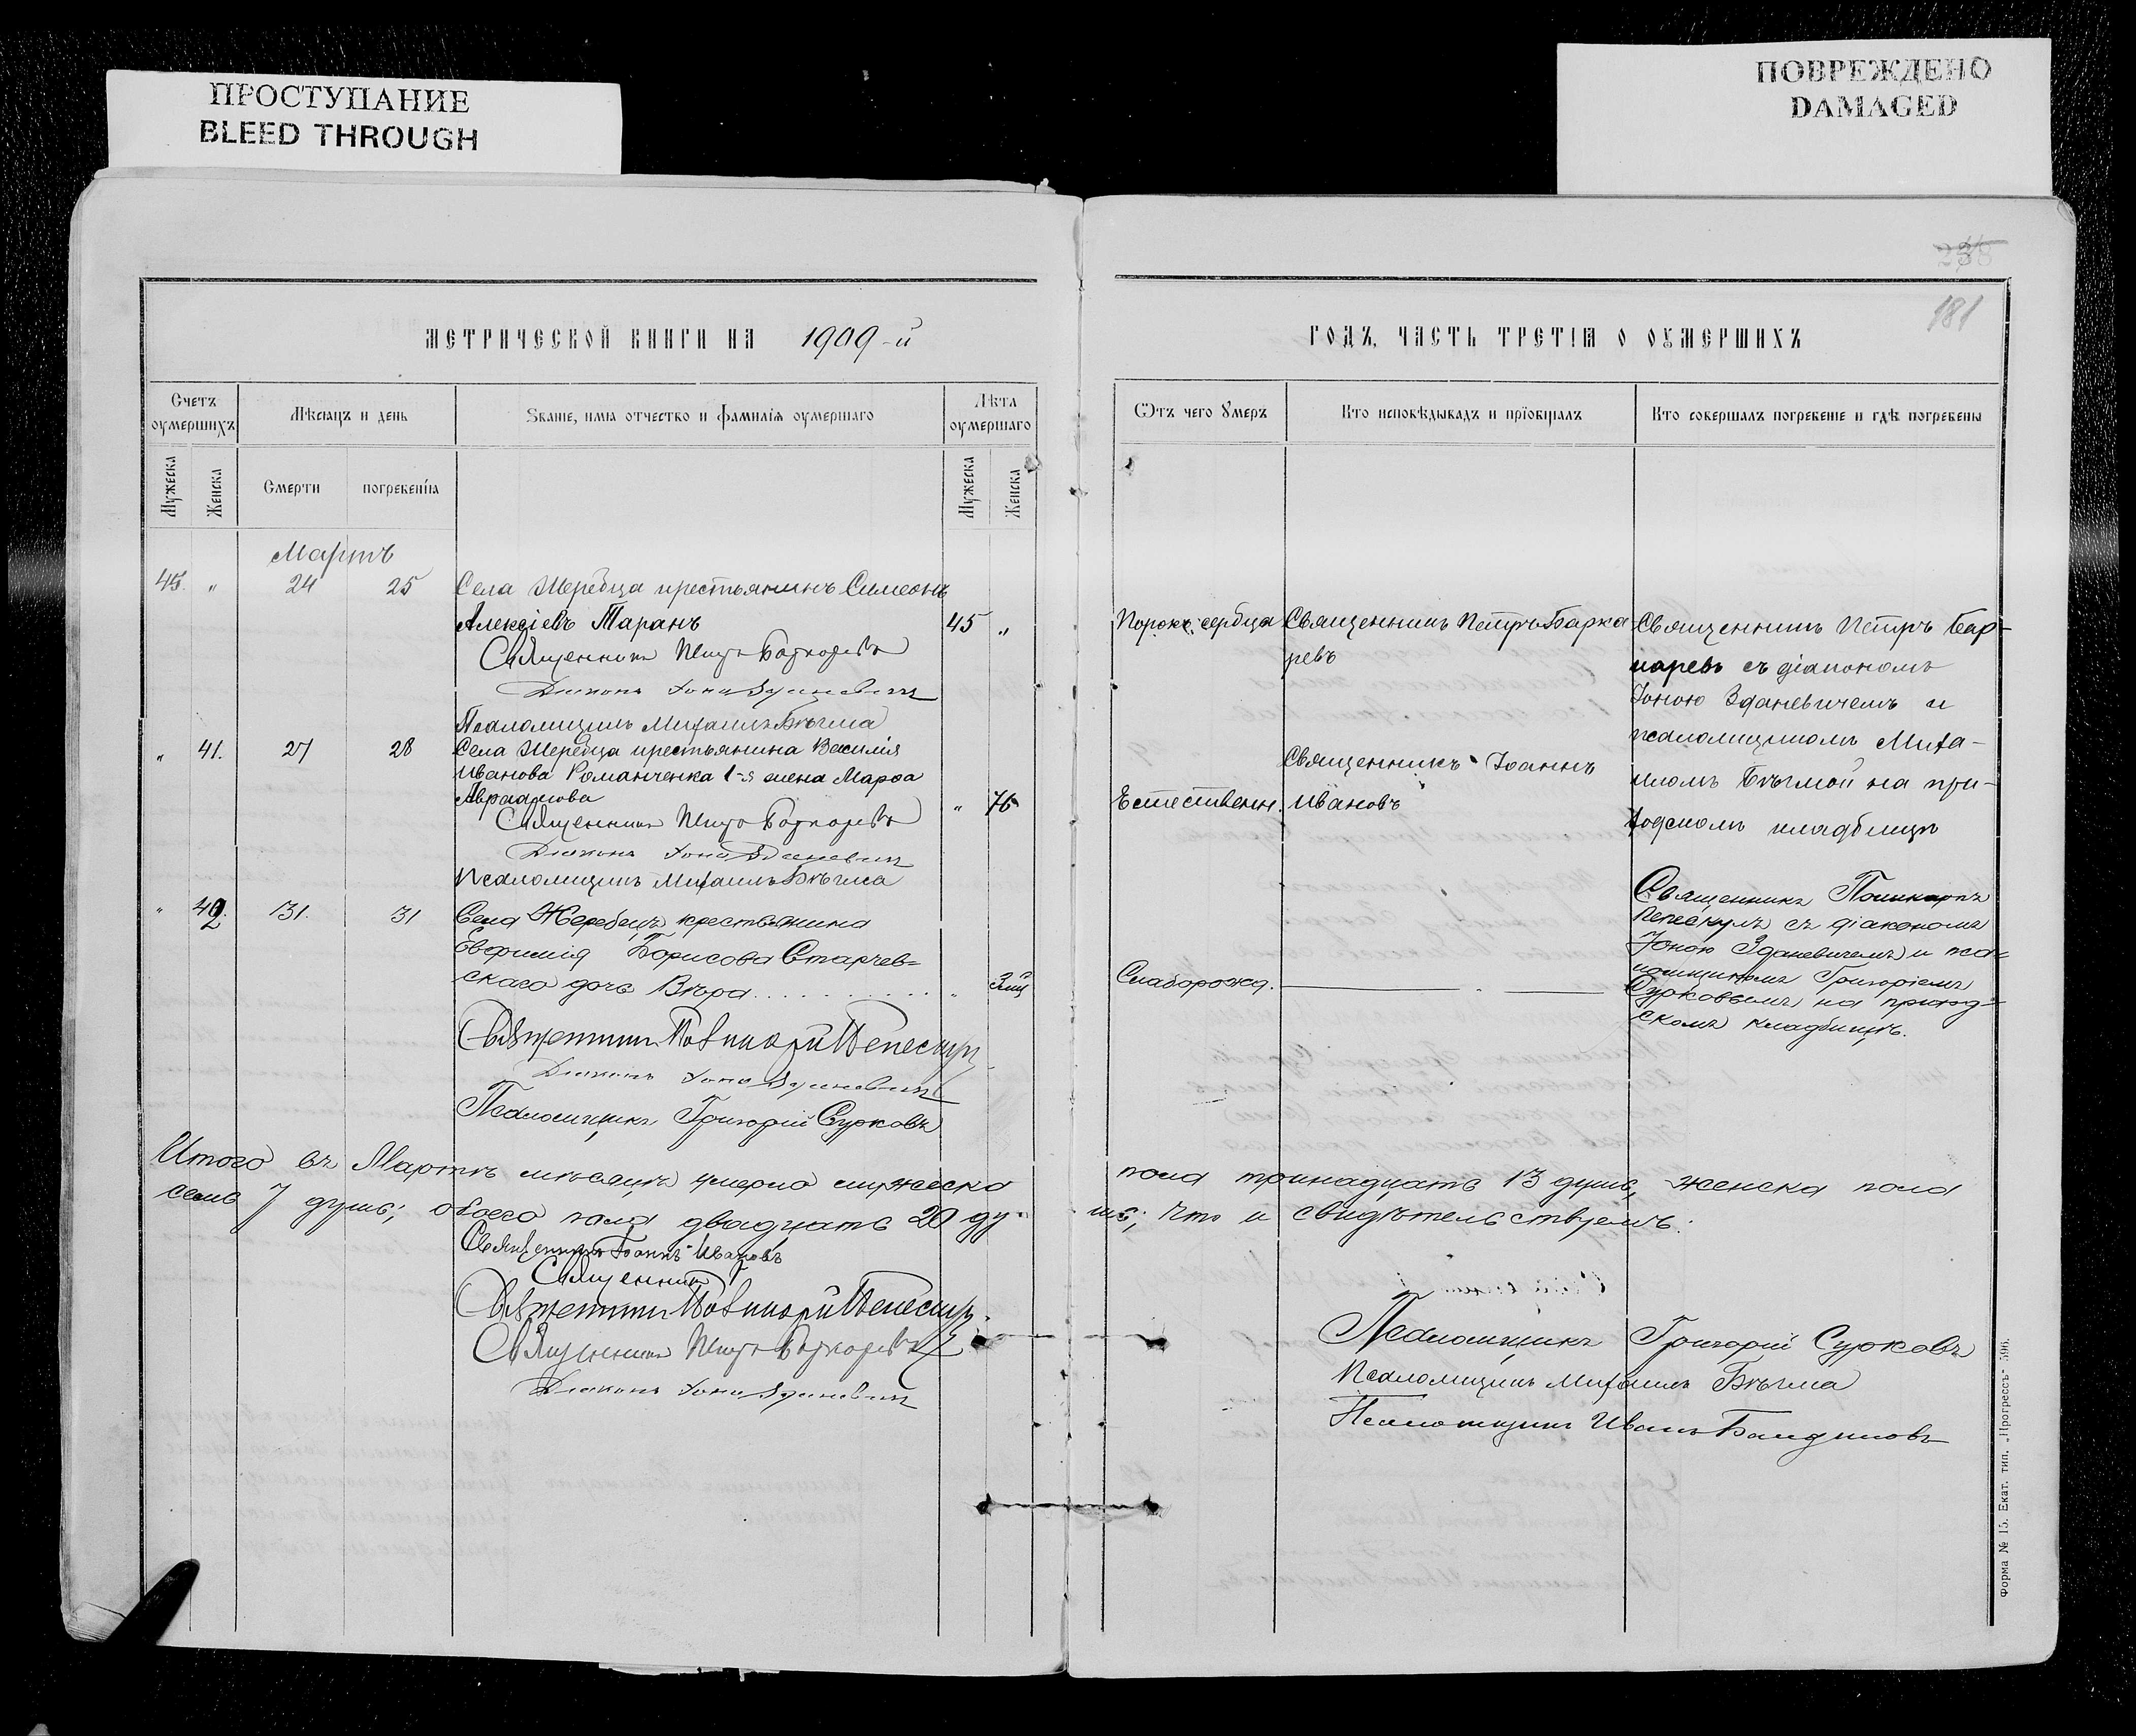 ПРОСТУПАНИЕ
BLEED THROUGH
ПОВРЕЖДЕНО
DAMAGED
238
181
МЕТРИЧЕСКОЙ КНИГИ НА 1909-й
ГОДЪ, ЧАСТЬ ТРЕТІЯ О ОУМЕРШИХЪ
Счетъ оумершихъ
Мѣсяцъ и день
Званіе, имя отчество и фамилія оумершаго
Лѣта оумершаго
Отъ чего умеръ
Кто исповѣдывалъ и пріобщалъ
Кто совершалъ погребеніе и гдѣ погребены
Мужеска
Женска
Смерти
погребенія
Мужеска
Женска
Мартъ
45. " 24 25 Села Жеребца крестьянинъ Симеонъ
Алексіевъ Таранъ 45 "
Порокъ сердца
Священникъ Петръ Барка-
ревъ
Священникъ Петръ Бар-
каревъ съ діакономъ
Іоною Зданевичемъ и
псаломщикомъ Миха-
иломъ Бѣгмой на при-
ходскомъ кладбищѣ
Священникъ Петръ Баркаревъ
Діаконъ Іона Зданевичъ
Псаломщикъ Михаилъ Бѣгма
" 41. 27 28 Села Жеребца крестьянина Василія
Иванова Романченка 1-я жена Марѳа
Авраамова " 76
Естественн.
Священникъ Іоаннъ
Ивановъ
Священникъ Петръ Баркаревъ
Діаконъ Іона Зданевичъ
Псаломщикъ Михаилъ Бѣгма
" 42. 31. 31 Села Жеребецъ крестьянина
Евфимія Борисова Старчев=
скаго дочь Вѣра . . . . . . . . . . " 3 мц
Слаборожд.
Священникъ Поликарпъ
Пепескулъ съ діакономъ
Іоною Зданевичемъ и пса=
ломщикомъ Григоріемъ
Сурковымъ на приход=
скомъ кладбищѣ.
Священникъ Поликарпъ Пепескулъ
Діаконъ Іона Зданевичъ
Псаломщикъ Григорій Сурковъ
Итого въ Мартѣ мѣсяцѣ умерло мужеска пола тринадцать 13 душъ, женска пола
семь 7 душъ; обоего пола двадцать 20 ду- шъ; что и свидѣтельствуемъ:
Священникъ Іоаннъ Ивановъ
Священникъ
Священникъ Поликарпъ Пепескулъ
Священникъ Петръ Баркаревъ
Діаконъ Іона Зданевичъ
Псаломщикъ Григорій Сурковъ
Псаломщикъ Михаилъ Бѣгма
Псаломщикъ Иванъ
Форма № 15. Екат. тип. „Прогрессъ" 596.